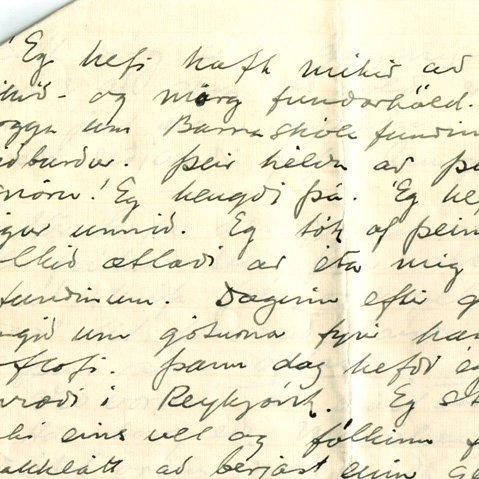 Eg hefi haft mikið að
og mörg fundarhöld.
um Barnaskóla fundin
Þeir héldu að þe
snöru! Eg hengdi þá. Eg he
unnið. Eg tók af þeim
ætlaði að éta mig
fundinum. Daginn eftir g
um göturna fyrir han
Þann dag hefði eg
í Reykjavík. Eg st
eins vel og fólkinn f
að berjast einn ge